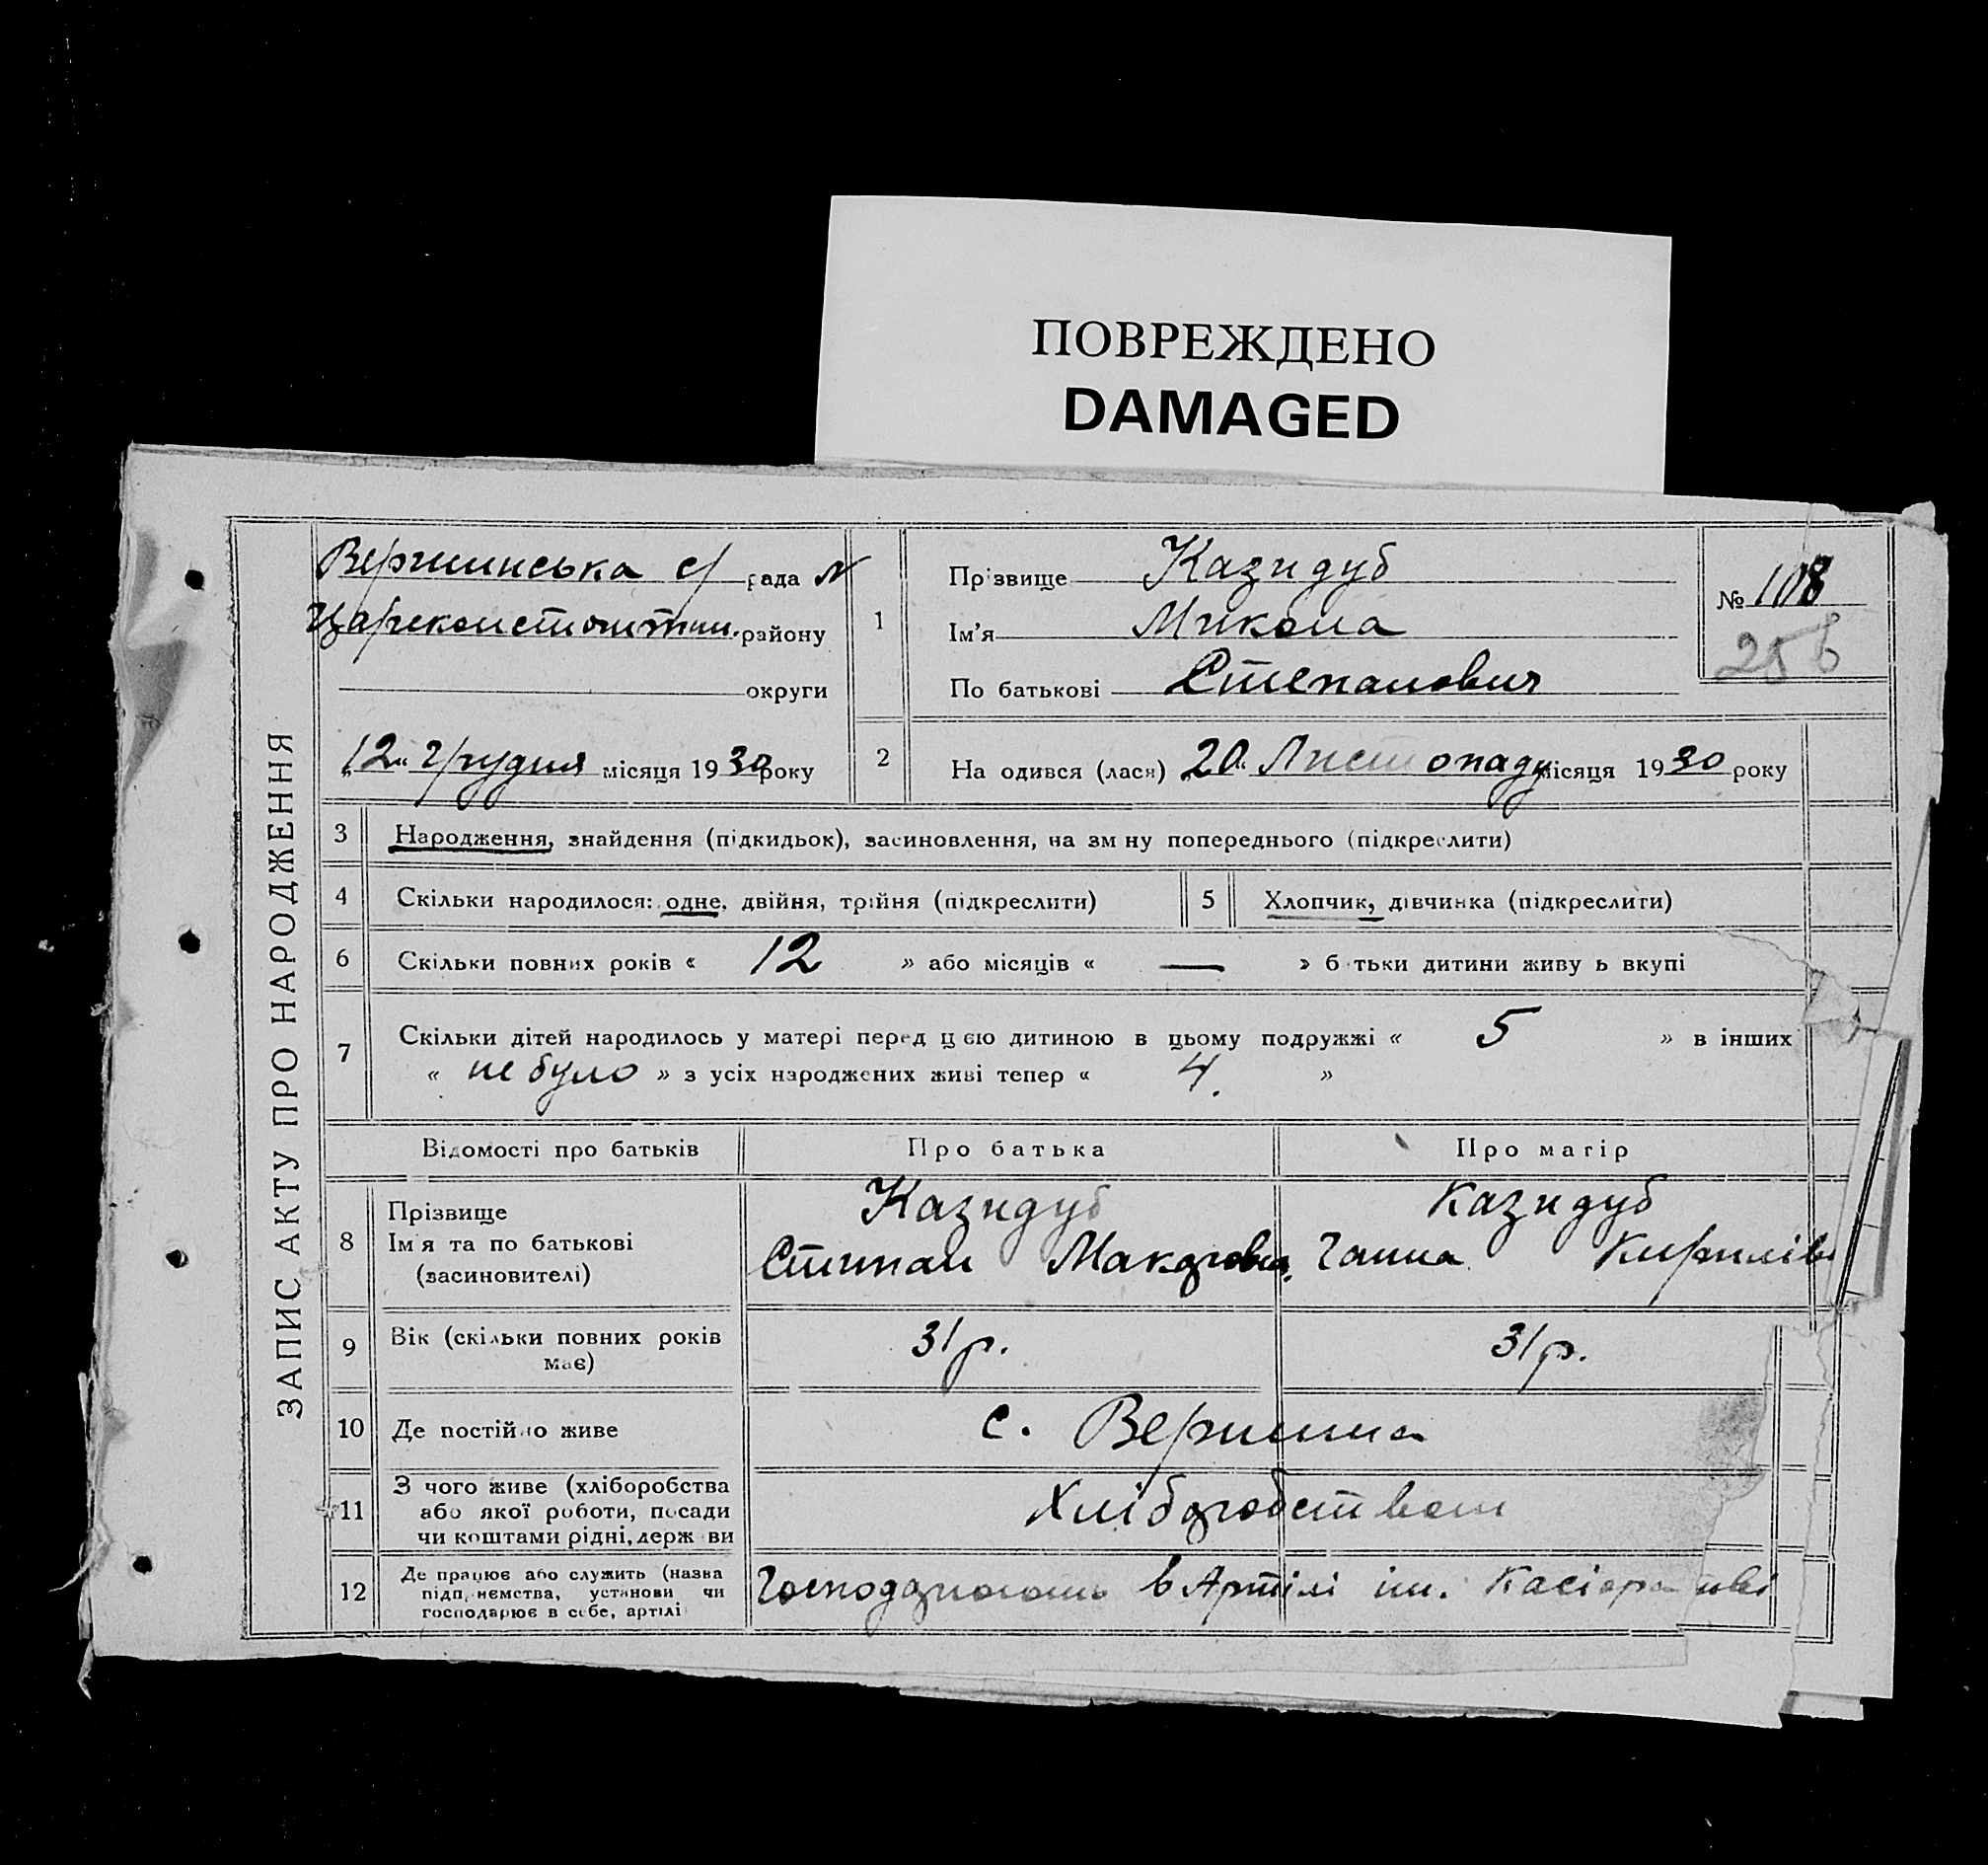 ПОВРЕЖДЕНО
DAMAGED
ЗАПИС АКТУ ПРО НАРОДЖЕННЯ
Вершинська с/ рада
Царекокстонтин. району
округи
„12“ Грудня місяця 1930 року
1
Прізвище Казидуб
Ім'я Микола
По батькові Степанович
№ 108
256
2
На одився (лася) 20 Листопаду місяця 1930 року
3 Народження, знайдення (підкидьок), засиновлення, на зм ну попереднього (підкреслити)
4 Скільки народилося: одне, двійня, трійня (підкреслити)
5 Хлопчик, дівчинка (підкреслити)
6 Скільки повних років « 12 » або місяців « — » б тьки дитини живу ь вкупі
7 Скільки дітей народилось у матері перед цією дитиною в цьому подружжі « 5 » в інших
« не було » з усіх народжених живі тепер « 4. »
Відомості про батьків Про батька Про матір
8 Прізвище Казидуб Казидуб
Ім'я та по батькові Стипан Макарович. Ганна Кирилів
(засиновителі)
9 Вік (скільки повних років має) 31 р. 31 р.
10 Де постійно живе с. Вершина
11 З чого живе (хліборобства
або якої роботи, посади
чи коштами рідні, держ ви
Хліборобством
12 Де працює або служить (назва
підприємства, установи чи
господарює в себе, артілі
Господарюють в Артілі ім.